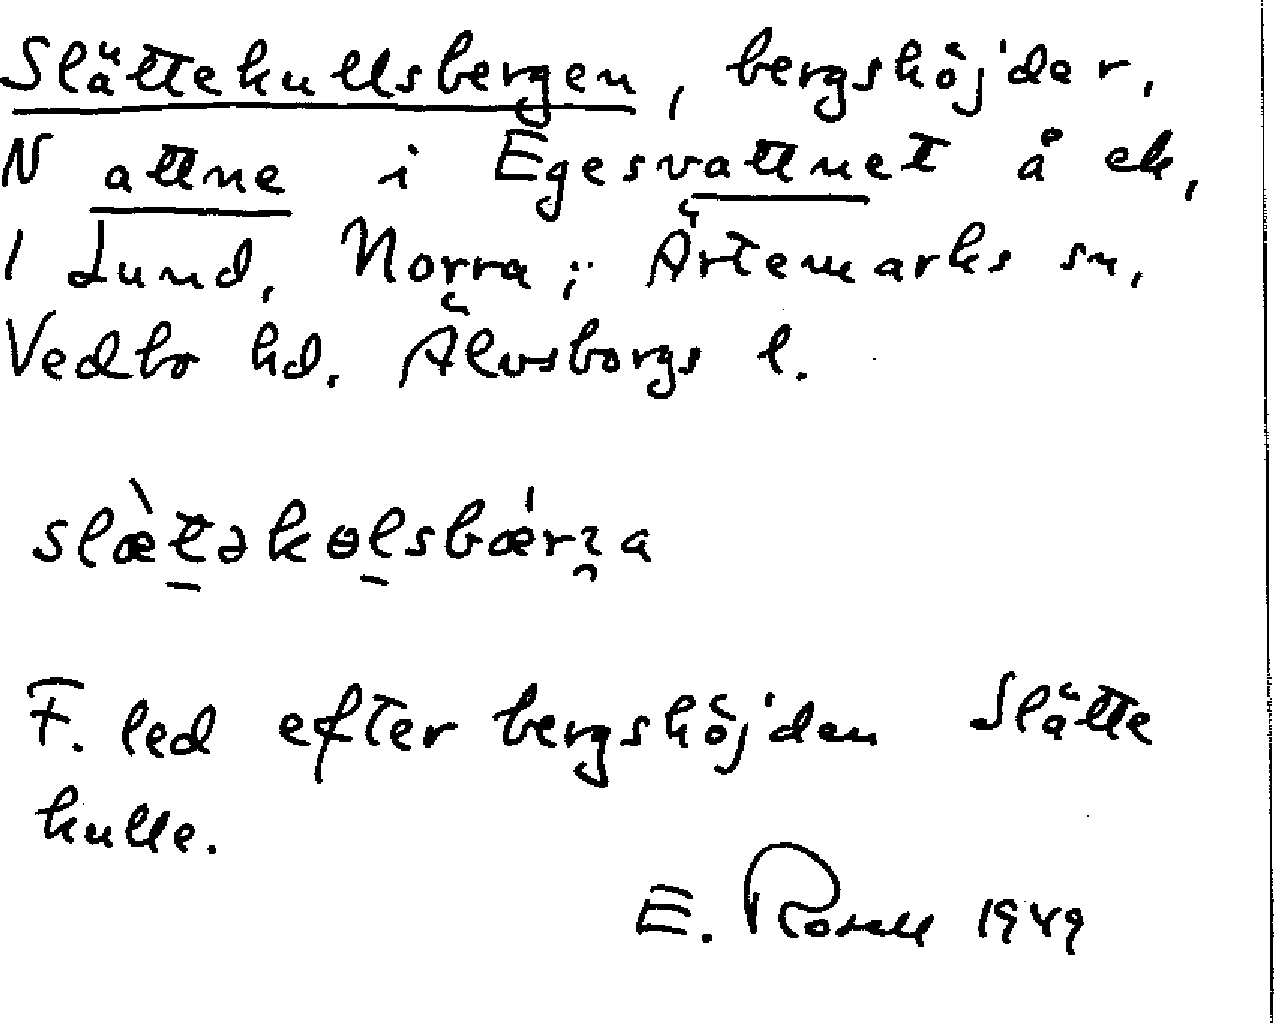 Slättekullsbergen, bergshöjder,
N attne i Egesvattnet å ek,
i Lund, Norra; Ärtemarks sn,
Vedbo hd. Älvsborgs l.
slæ̀təkɵlsbǽrʒa
F. led efter bergshöjden Slätte
kulle.
E. Rosell 1949